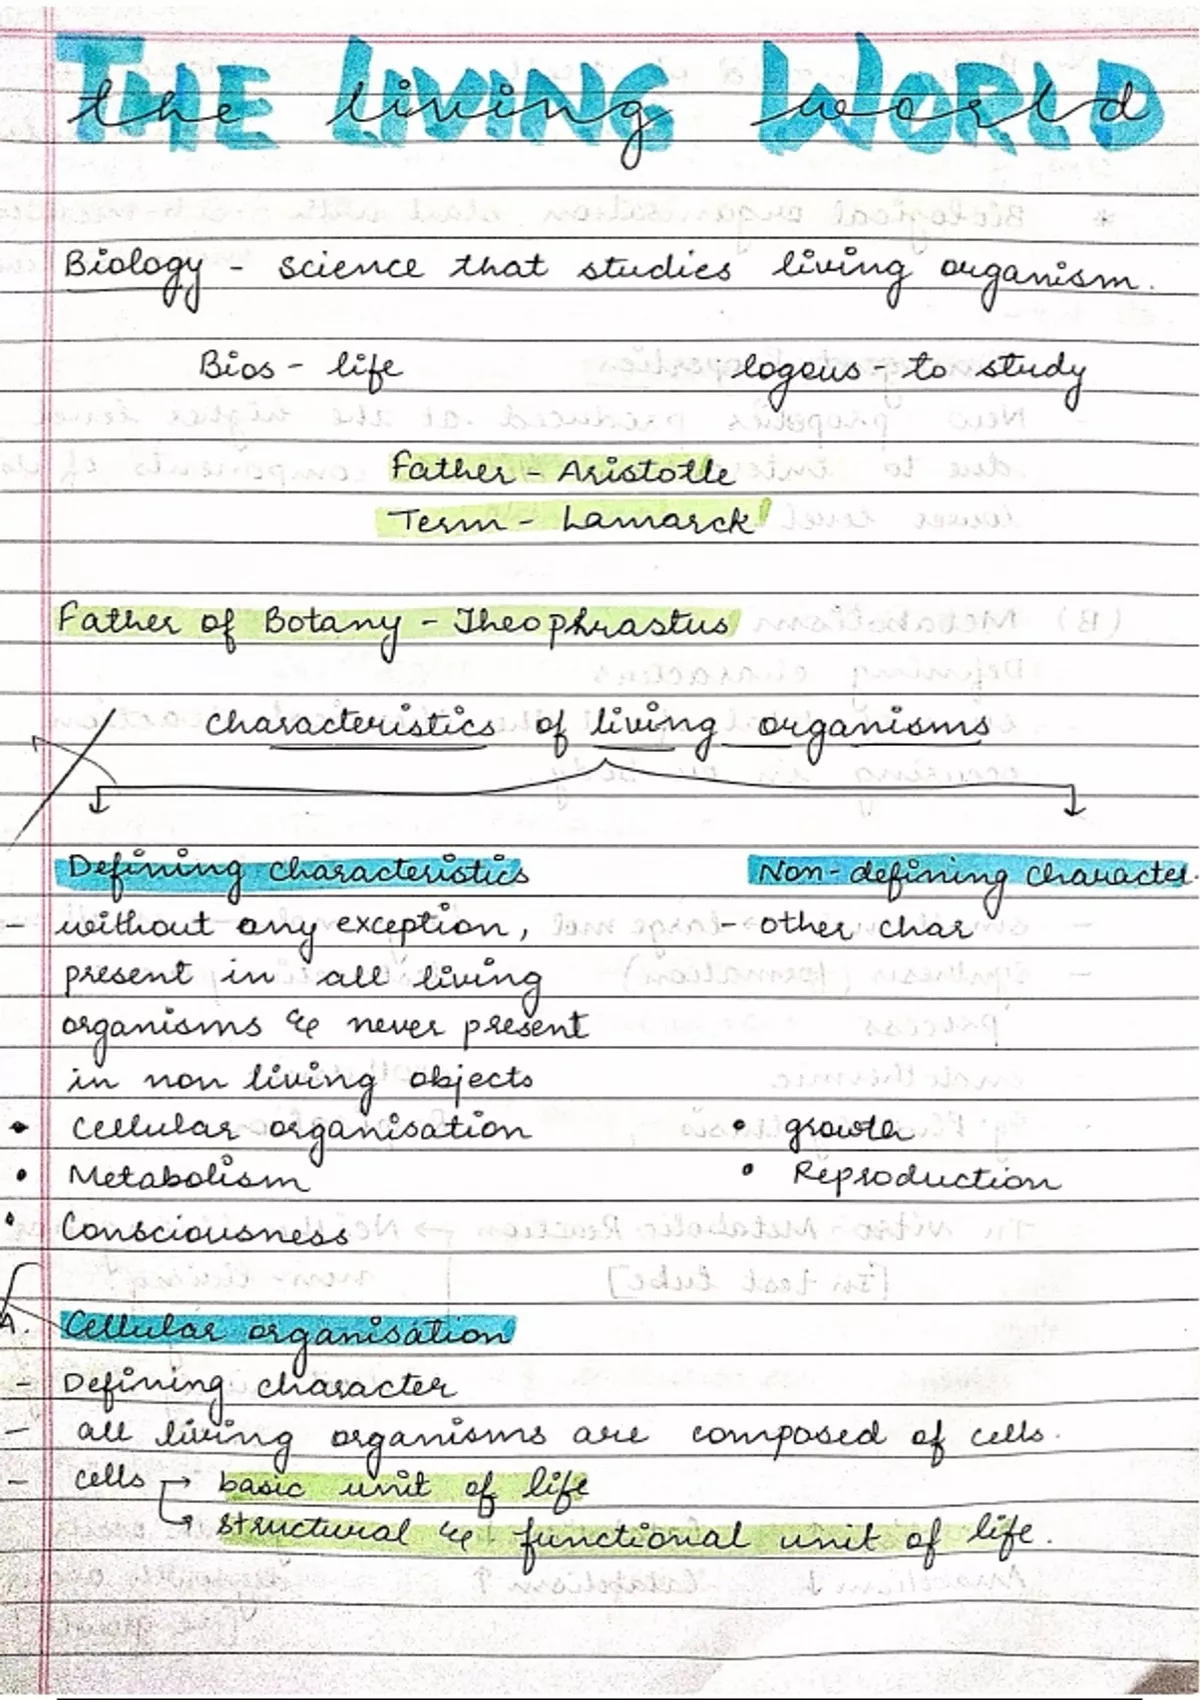 THE LIVING WORLD
the living world
Biology - science that studies living organism.
Bios - life logous - to study
Father - Aristotle
Term - Lamarck
Father of Botany - Theophrastus
characteristics of living organisms
Defining characteristics Non-defining character.
- without any exception, - other char
present in all living
organisms & never present
in non living objects
• cellular organisation • growth
• Metabolism • Reproduction
• Consciousness
A. Cellular organisation
- Defining character
- all living organisms are composed of cells.
- cells → basic unit of life
→ structural & functional unit of life.